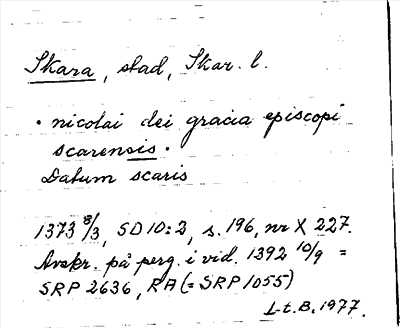 Skara, stad, Skar. l.
• nicolai dei gracia episcopi
scarensis •
Datum scaris
1373 8/3, SD 10:2, s. 196, nr X 227.
Avskr. på perg. i vid. 1392 10/9 =
SRP 2636, RA (= SRP 1055)
L-t. B. 1977.